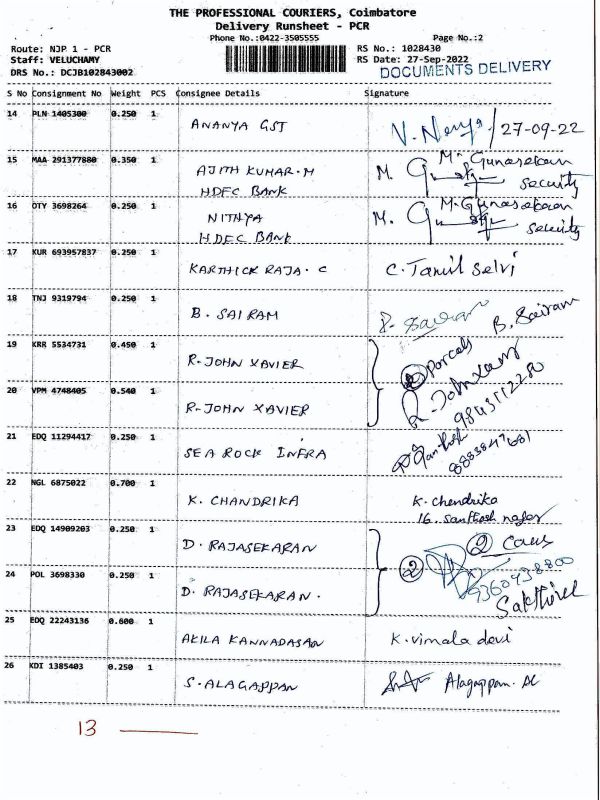 THE PROFESSIONAL COURIERS, Coimbatore
Delivery Runsheet - PCR
Phone No.:0422-3505555 Page No.:2
Route: NJP 1 - PCR RS No.: 1028430
Staff: VELUCHAMY RS Date: 27-Sep-2022
DRS No.: DCJB102843002 DOCUMENTS DELIVERY
S No Consignment No Weight PCS Consignee Details Signature
14 PLN 1405300 0.250 1 ANANYA GST 27-09-22
15 MAA 291377880 0.350 1 AJITH KUMAR.M M. Gunasekaran
HDFC BANK security
16 OTY 3698264 0.250 1 NITHYA M. Gunasekaran
HDFC BANK security
17 KUR 693957837 0.250 1 KARTHICK RAJA. C C. Tamil Selvi
18 TNJ 9319794 0.250 1 B. SAI RAM B. Sairam
19 KRR 5534731 0.450 1 R. JOHN XAVIER 2 parcels
20 VPM 4748405 0.540 1 R. JOHN XAVIER R. John Xavier
9843112280
21 EDQ 11294417 0.250 1 SEA ROCK INFRA
22 NGL 6875022 0.700 1 K. CHANDRIKA K. chendrika
16. Santhosh nagar
23 EDQ 14909203 0.250 1 D. RAJASEKARAN 2 2
24 POL 3698330 0.250 1 D. RAJASEKARAN. 9360938800
Sakthivel
25 EDQ 22243136 0.600 1 AKILA KANNADASAN K. vimala devi
26 KDI 1385403 0.250 1 S. ALAGAPPAN Alagappan.
13